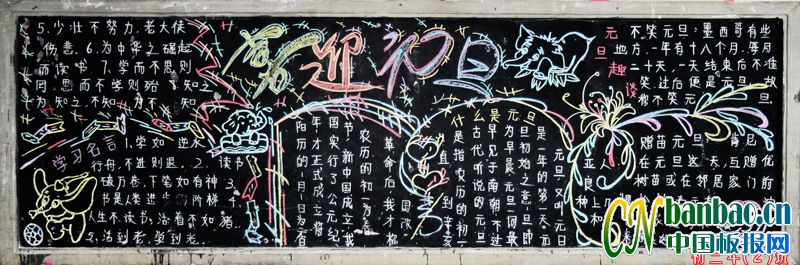 喜迎初旦
5.少壮不努力,老大徒
伤悲 6.为中华之崛起
而读书 7.学而不思则
罔,思而不学则殆 知之
为知之,不知为不知
学习名言
1.学如逆水
行舟,不进则退 2.读书
破万卷,下笔如有神
3.书是人类进步的阶梯 4.
人生不读书,活着不如猪
5.活到老,学到老
什么是元旦
元旦又叫元日
是一年的第一天。元
旦初始之意,旦即
为早晨,元旦一词最
早见于南朝,不过
古代所说的元旦
是指农历的初一
直到辛亥
革命后,我才把
农历的初一为春
节,新中国成立
国实行了公元纪
年才正式成立将
阳历的1月1日为
元旦趣谈
不笑元旦:墨西哥有些
地方,一年有十八个月,每月
二十天,一天结束后不准
笑,过后便是元旦,故
称不笑元旦
赠苗元旦
肯尼亚
在元旦这天,互赠优良
树苗或在邻居家门前
种上和
初二年(2)班
CN banbao.cn
中国板报网